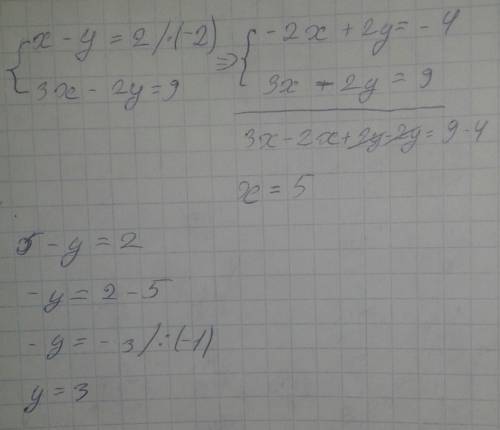 x - y = 2 /·(-2)
3x - 2y = 9
⇒
-2x + 2y = -4
3x - 2y = 9
3x - 2x + 2y - 2y = 9 - 4
x = 5
5 - y = 2
-y = 2 - 5
-y = -3 /:(-1)
y = 3